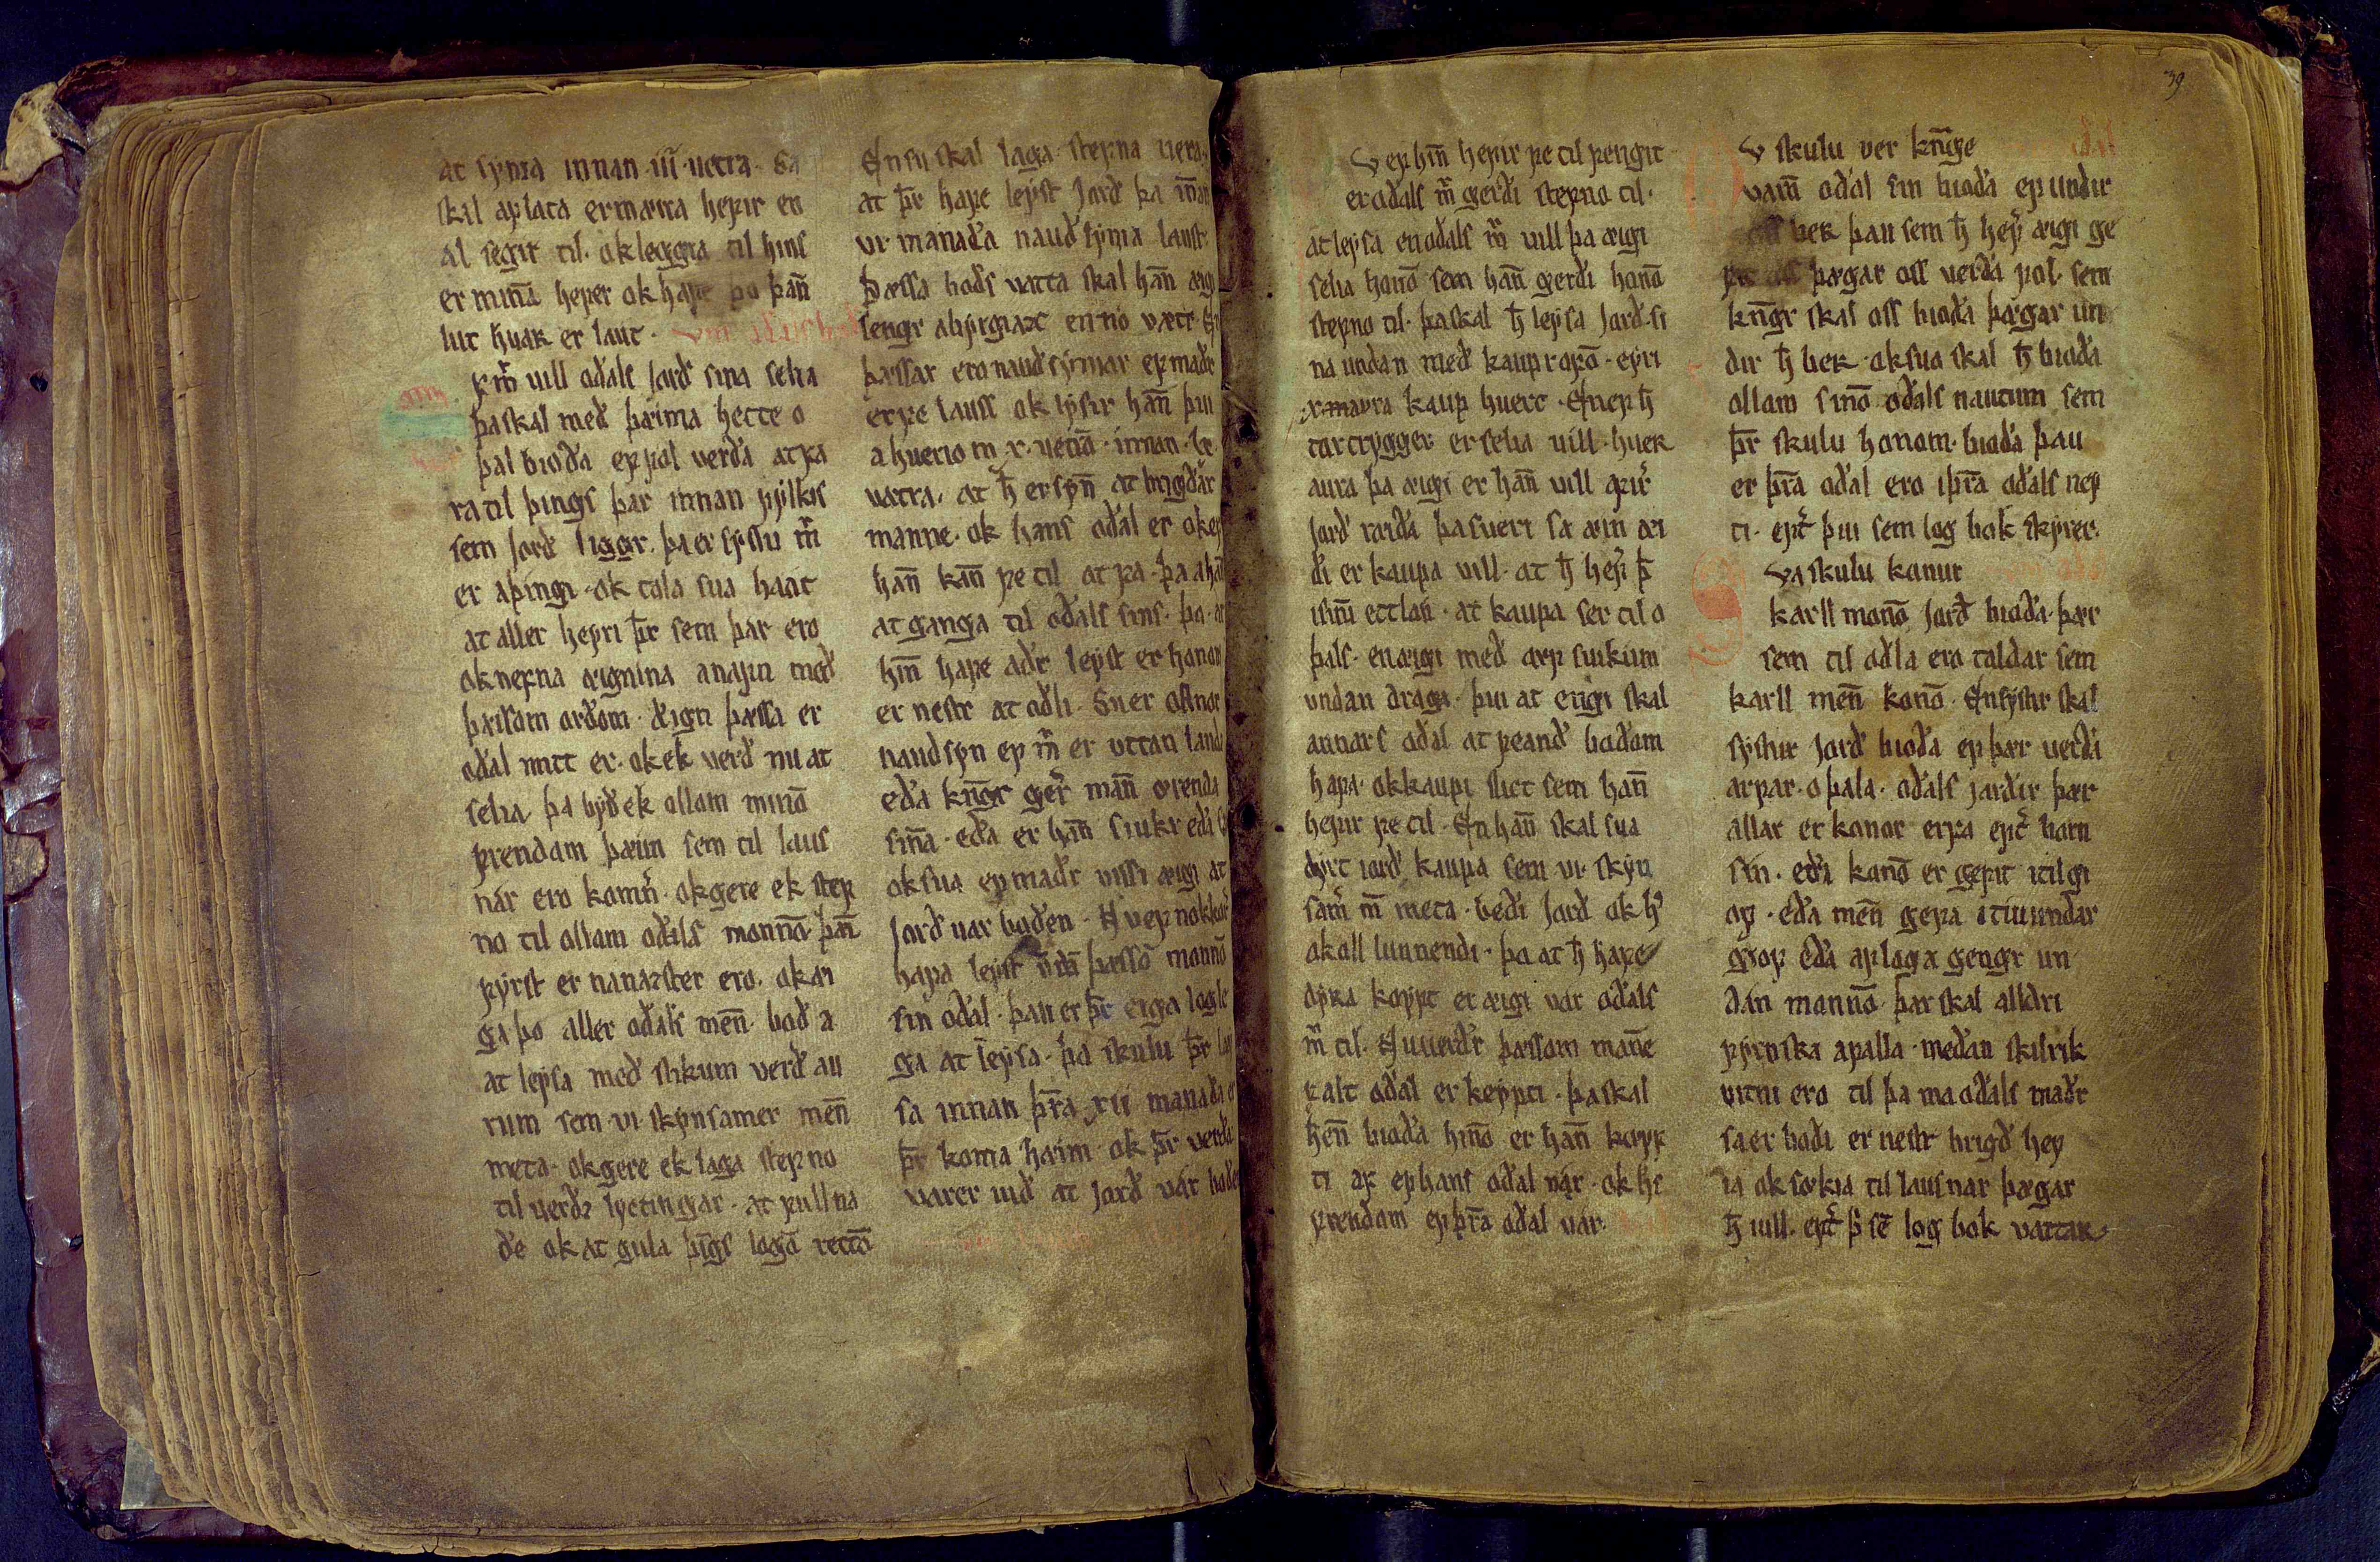 at syma innan .iii. uetra. Sa
skal aflata er mæira hefir en
al segir til. ok leggia til hins
er minna hefer ok hafe þo þan̄
lut huar er laut.
ꝼ m̄ uill oðals Jorð sina selia
þa skal með þæima hette o
þal bioða ef fol verða at fa
ra til þings þar innan fylkis
sem Jorð liggr. þa er syslu m̄
er a þingi. ok tala sua haatt
at aller heyri þr̄ sem þar ero
ok nefna æignina a nafn með
þæssom orðom. Æign þæssa er
oðal mitt er. ok ek verð nu at
selia þa byð ek ollom minō
frendom þæim sem til laus
nar ero komn̄. ok gere ek stef
no til ollom oðals monnō þan̄
fyrst er nanaster ero. ok æi
ga þo aller oðals men̄ boð a
at leysa með slikum verð au
rum sem vi skynsamer men̄
meta. ok gere ek laga stefno
til uerða lyctingar. at fullna
ðe ok at gula þīgs logō rettō
En su skal laga stefna uera,
at þr̄ hafe leyst Jorð þa in̄an
vi manaða nauðsynia laust.
Þæssa boðs vatta skal han̄ æigi
lengr abyrgiazc en .x. vætr. En
þæssar ero nauðsyniar ef maðr
er fe lauss ok lysir han̄ þui
a huerio m .x. uetrō. innan .lx.
vætra. at h̄ er syn̄ at brigðar
manne. ok hans oðal er ok ef
han̄ kan̄ fe til at fa. þa a han̄
at ganga til oðals sins. þo at
hin̄ hafe aðr leyst er honom
er nestr at oðli. Su er onnor
nauðsyn ef m̄ er vttan landz
eða kn̄gr ger̄ man̄ ørenda
sin̄a. eða er han̄ siukr eða
ok sua ef maðr uissi æigi at
Jorð uar boðen. Nu ef nokkor
hafa leyst vnd̄ þæssō monnō
sin oðal. þau er þr̄ eiga logle
ga at leysa. þa skulu þr̄ ley
sa innan þr̄ra .xii. manaða er
þr̄ koma hæim. ok þr̄ verða
varer uið at Jorð var boðen
V ef hin̄ hefir fe til fengit
er oðals m̄ gerði stefno til.
at leysa en oðals m̄ vill þa æigi
selia honō sem han̄ gerði honō
stefno til. þa skal h̄ leysa Jorð si
na undan með kaup rofō. eyri
æ mærra kaup huert. En ef h̄
tortrygger er selia uill. huer
aura þa æigi er han̄ vill firir
Jorð ræiða þa sueri sa æin æi
ði er kaupa vill. at h̄ hefi þ
isin̄i ettlan. at kaupa ser til o
þals. en æigi með arf suikum
vndan draga. þui at engi skal
annars oðal at feand boðom
hafa. ok kaupi slict sem han̄
hefir fe til. En han̄ skal sua
dyrt iorð kaupa sem vi skyn
sam̄ m̄ meta. beði Jorð ok h̄s
ok oll lunnendi. þo at h̄ hafe
dyra kœypt er æigi var oðals
m̄ til. Nu uerðr þæssom man̄e
falt oðal er keypti. þa skal
hen̄ bioða hinō er han̄ kœyp
ti af ef hans oðal var. ok hs
frendom ef þr̄a oðal var.
39
V skulu ver kn̄ge
vārn oðal sin bioða ef undir
oss ber þau sem h̄ hef̄ æigi ge
fit oss þægar oss verða fol. sem
kn̄gr skal oss bioða þægar un
dir h̄ ber. ok sua skal h̄ bioða
ollom sinō oðals nautum sem
þr̄ skulu honom. bioða þau
er þr̄a oðal ero i þr̄a oðals nef
ti. ept̄ þui sem log bok skyrer.
Va skulu konur
karll monnō Jorð bioða. þær
sem til oðla ero taldar sem
karll men̄ konō. En systir skal
systur Jorð bioða ef þær uerða
arfar. oþala. oðals jarðir þær
allar er konor erfa ept̄ born
sin. eða konō er gefit i tilgi
of. eða men̄ gefa i tiuundar
giof eða aflaga gengr un
dan monnō. þar skal alldri
fyrnska a falla. meðan skilrik
vitni ero til þa ma oðals maðr
sa er boði er nestr brigð hef
ia ok sœkia til lausnar þægar
h̄ uill. ept̄ þ̄ sē log bok vattar